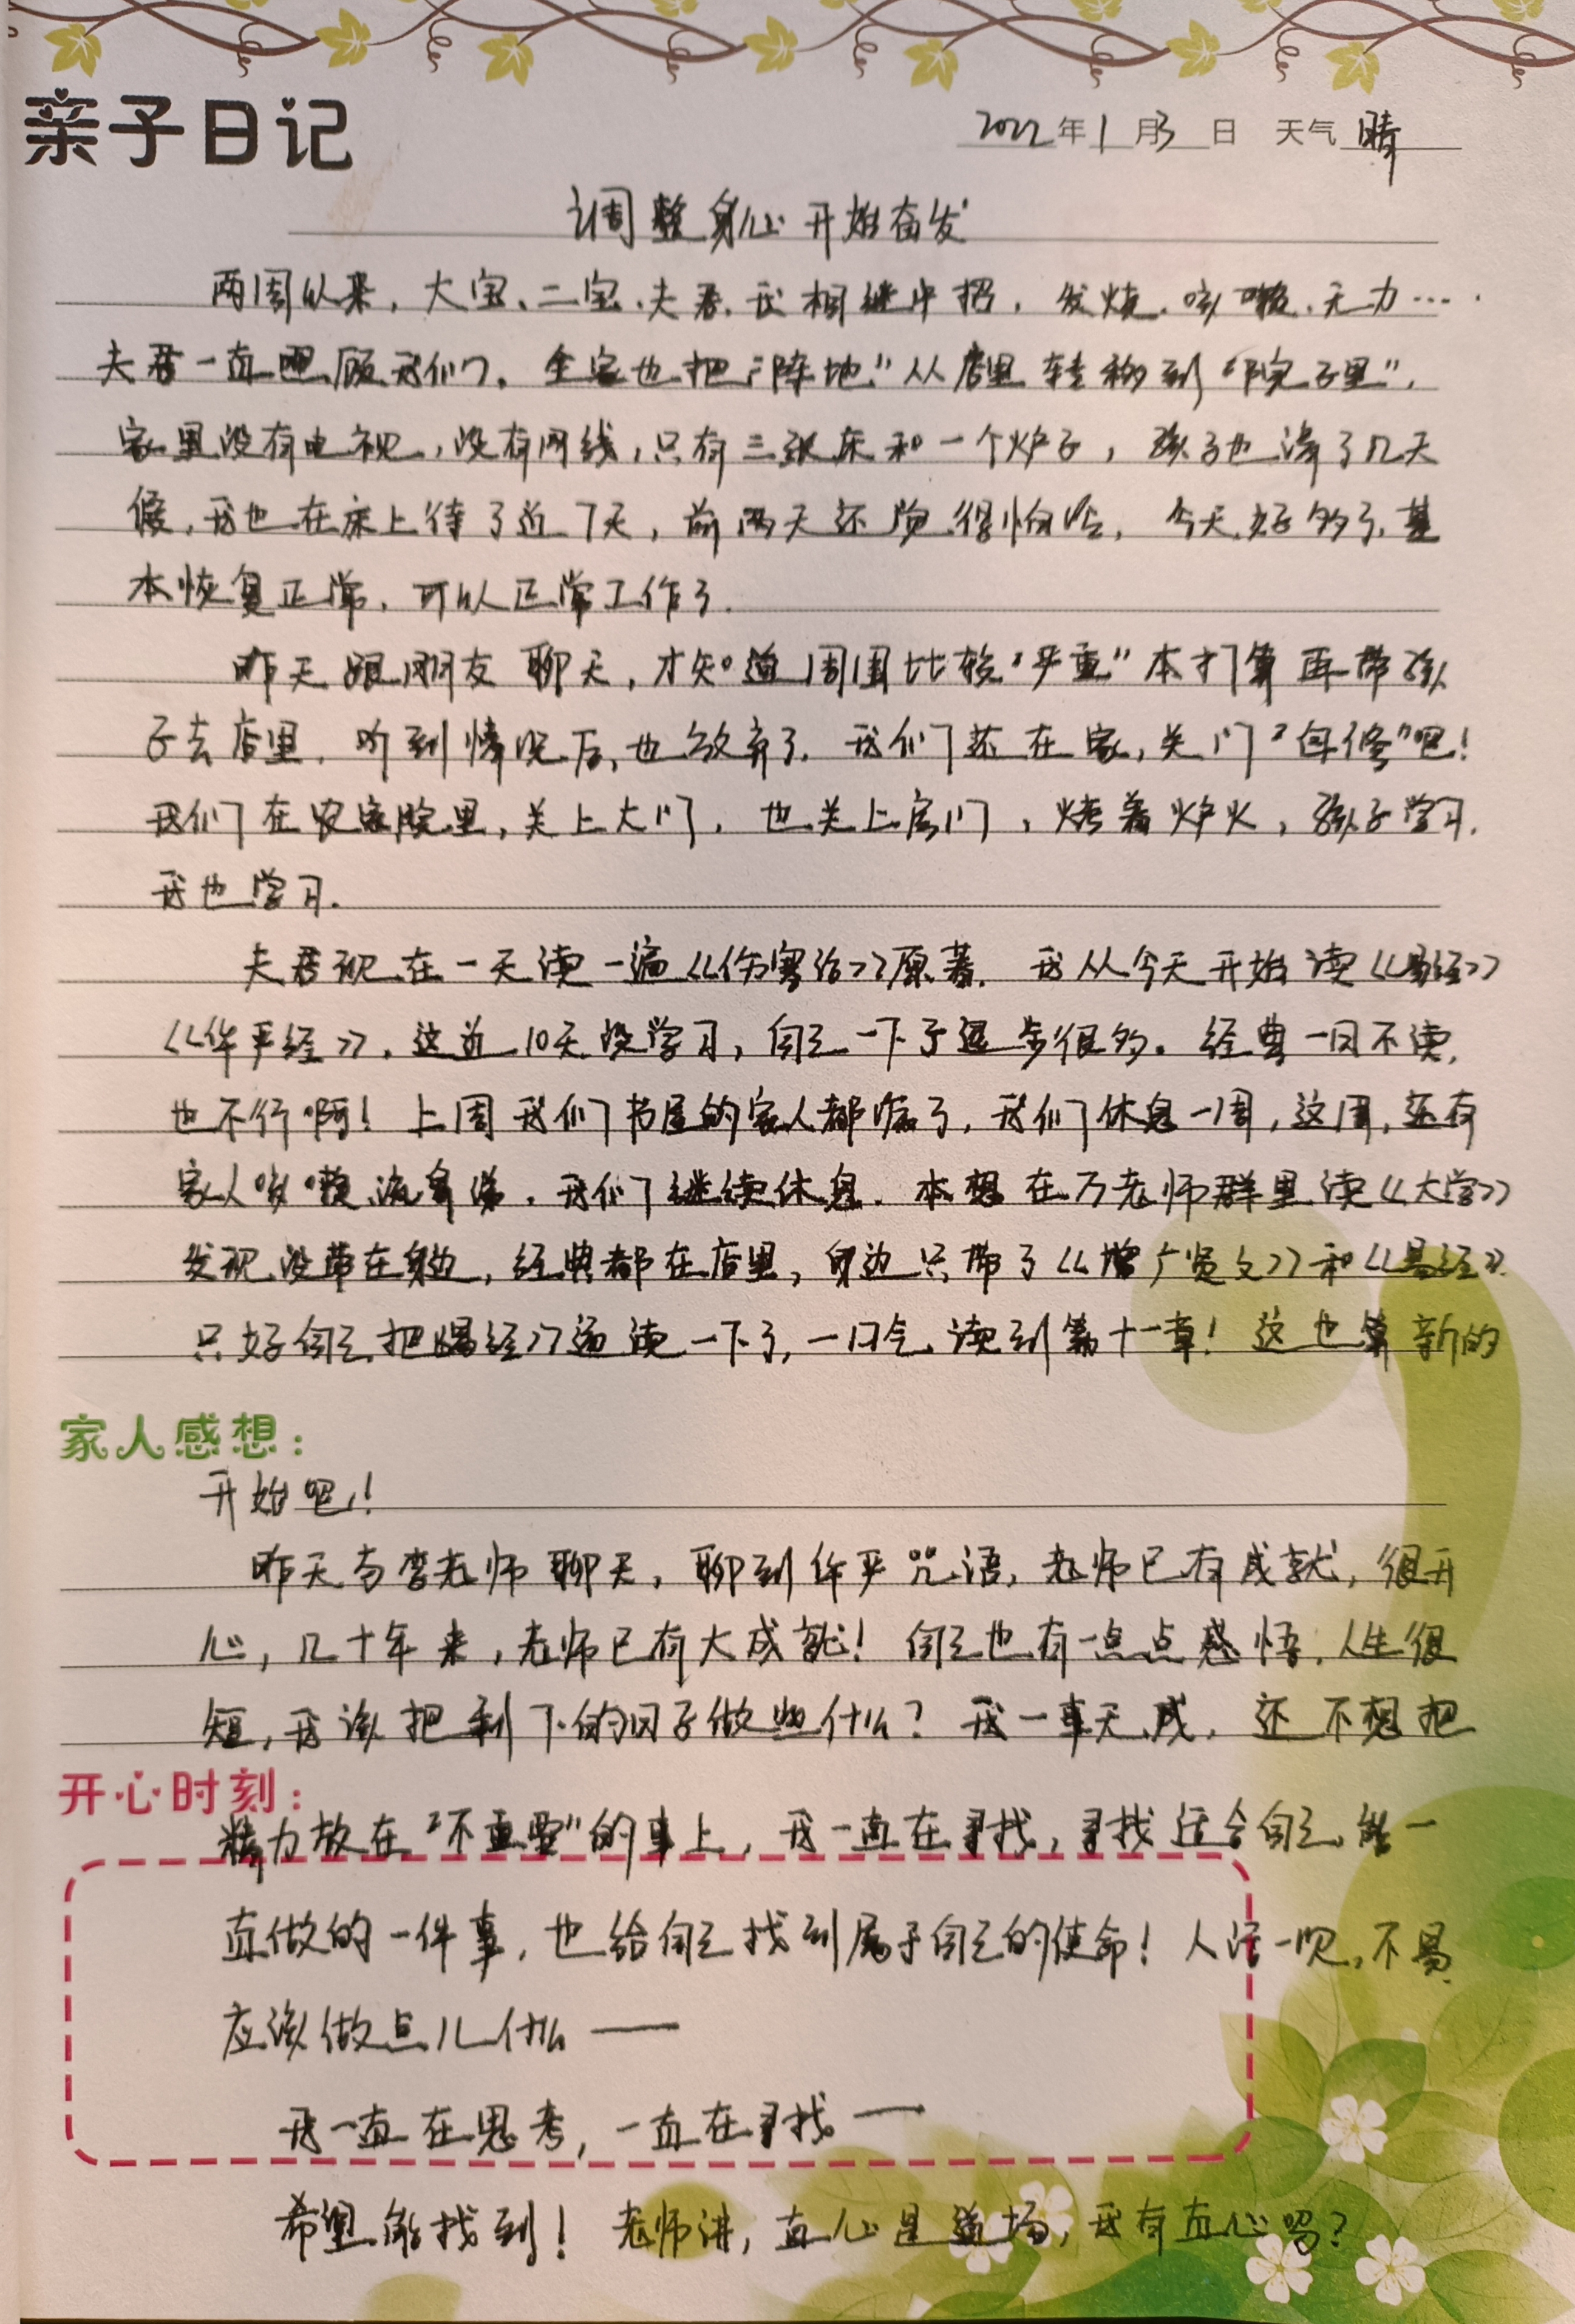 亲子日记
2022年1月3日 天气 晴
调整身心 开始奋发
两周以来，大宝、二宝、夫君、我相继中招，发烧、咳嗽、无力……
夫君一直照顾我们，全家也把“阵地”从店里转移到“院子里”，
家里没有电视，没有网线，只有三张床和一个炉子，孩子也清了几天
候，我也在床上待了近7天，前两天还觉得怕冷，今天好多了，基
本恢复正常，可以正常工作了。
昨天跟朋友聊天，才知道周围比较“严重”本打算再带孩
子去店里，听到情况后，也放弃了，我们还在家，关门“自修”吧！
我们在农家院里，关上大门，也关上房门，烤着炉火，孩子学习，
我也学习。
夫君现在一天读一遍《伤寒论》原著，我从今天开始读《易经》
《华严经》，这近10天没学习，自己一下子退步很多。经典一日不读，
也不行啊！上周我们书屋的家人都病了，我们休息一周，这周，还有
家人咳嗽流鼻涕，我们继续休息，本想在万老师群里读《大学》
发现没带在身边，经典都在店里，身边只带了《增广贤文》和《易经》
只好自己把《易经》通读一下了，一口气读到第十一章！这也算新的
家人感想：
开始吧！
昨天与李老师聊天，聊到华严咒语，老师已有成就，很开
心，几十年来，老师已有大成就！自己也有一点点感悟，人生很
短，我该把剩下的日子做些什么？我一事无成，还不想把
开心时刻：
精力放在“不重要”的事上，我一直在寻找，寻找适合自己能一
直做的一件事，也给自己找到属于自己的使命！人活一世，不易
应该做点儿什么——
我一直在思考，一直在寻找——
希望能找到！老师讲，直心是道场，我有直心吗？